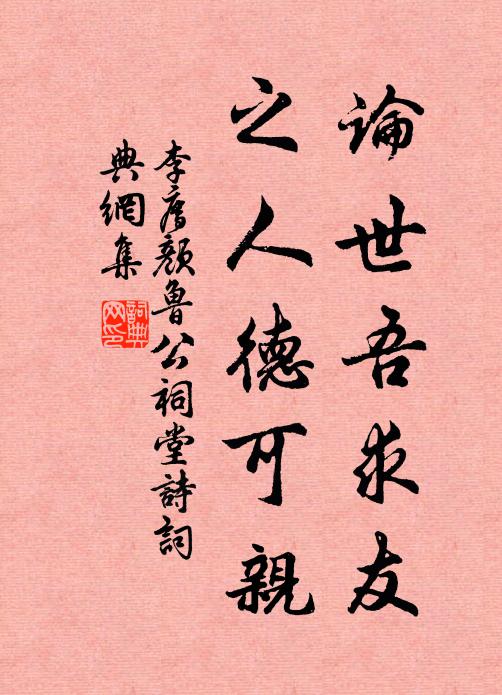 論世吾求友
之人德可親
李廌顏魯公祠堂詩詞
典網集
詞典
网印